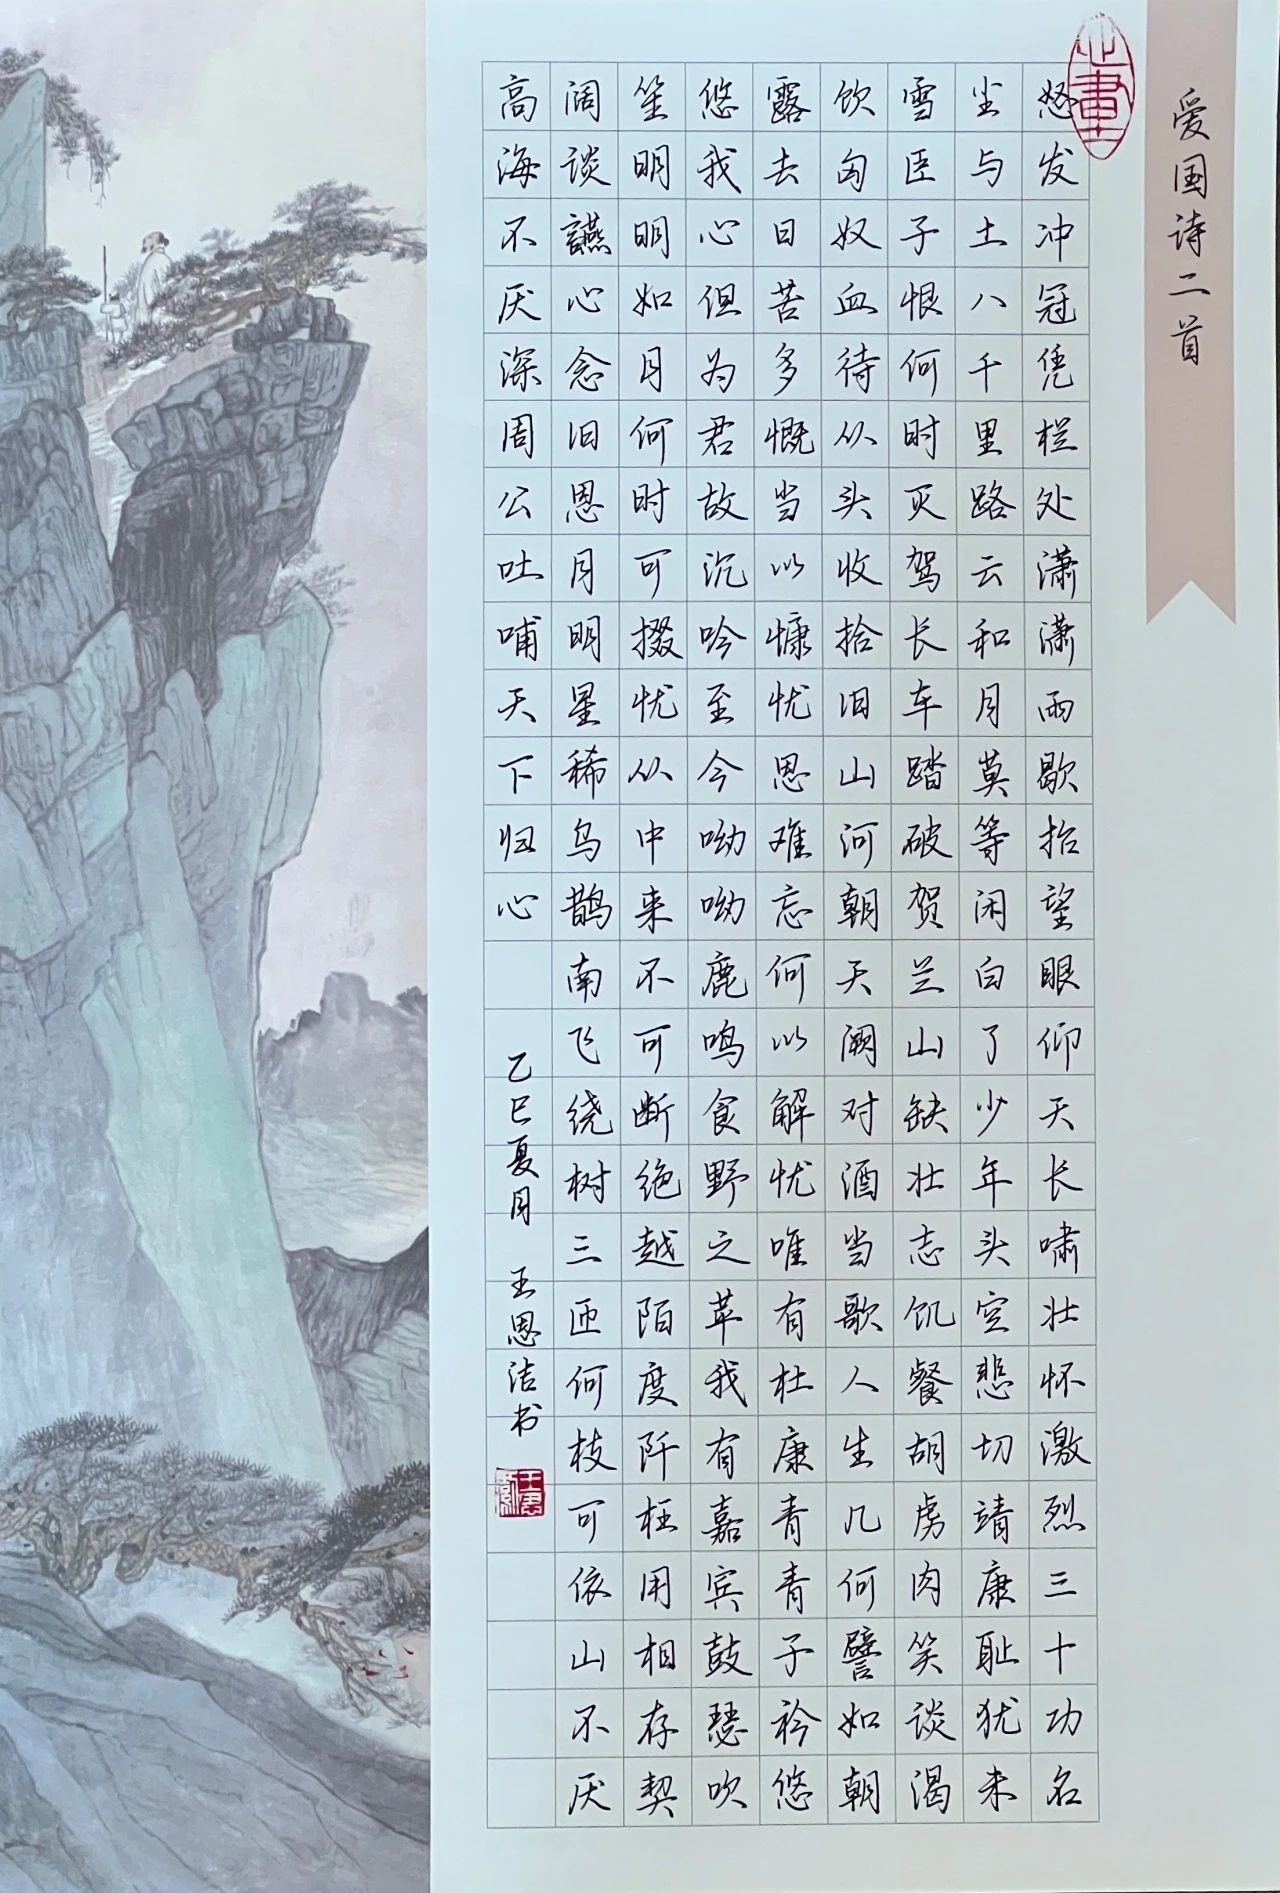 爱国诗二首
怒发冲冠凭栏处潇潇雨歇抬望眼仰天长啸壮怀激烈三十功名
尘与土八千里路云和月莫等闲白了少年头空悲切靖康耻犹未
雪臣子恨何时灭驾长车踏破贺兰山缺壮志饥餐胡虏肉笑谈渴
饮匈奴血待从头收拾旧山河朝天阙对酒当歌人生几何譬如朝
露去日苦多慨当以慷忧思难忘何以解忧唯有杜康青青子衿悠
悠我心但为君故沉吟至今呦呦鹿鸣食野之苹我有嘉宾鼓瑟吹
笙明明如月何时可掇忧从中来不可断绝越陌度阡枉用相存契
阔谈讌心念旧恩月明星稀乌鹊南飞绕树三匝何枝可依山不厌
高海不厌深周公吐哺天下归心
乙巳夏月 王恩洁书